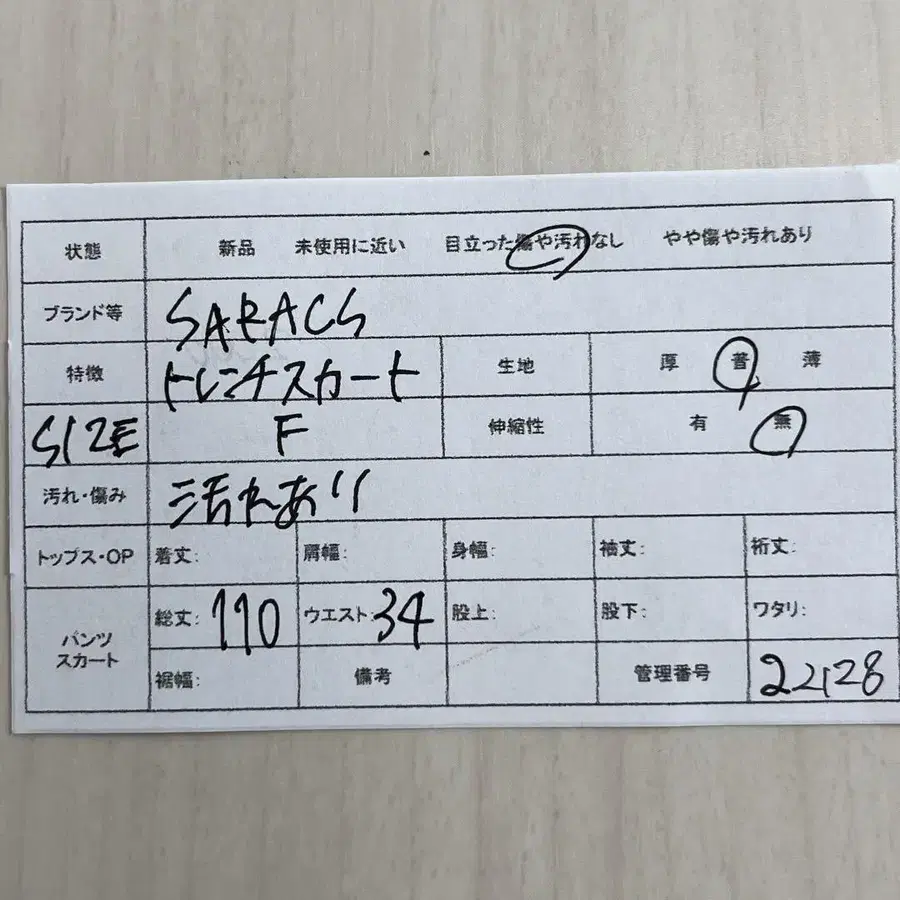 状態 新品 未使用に近い 目立った傷や汚れなし やや傷や汚れあり
ブランド等 SARACS
特徴 トレンチスカート 生地 厚 普 薄
SIZE F 伸縮性 有 無
汚れ・傷み 汚れあり
トップス・OP 着丈: 肩幅: 身幅: 袖丈: 裄丈:
パンツ
スカート
総丈: 110 ウエスト: 34 股上: 股下: ワタリ:
裾幅: 備考 管理番号 22128